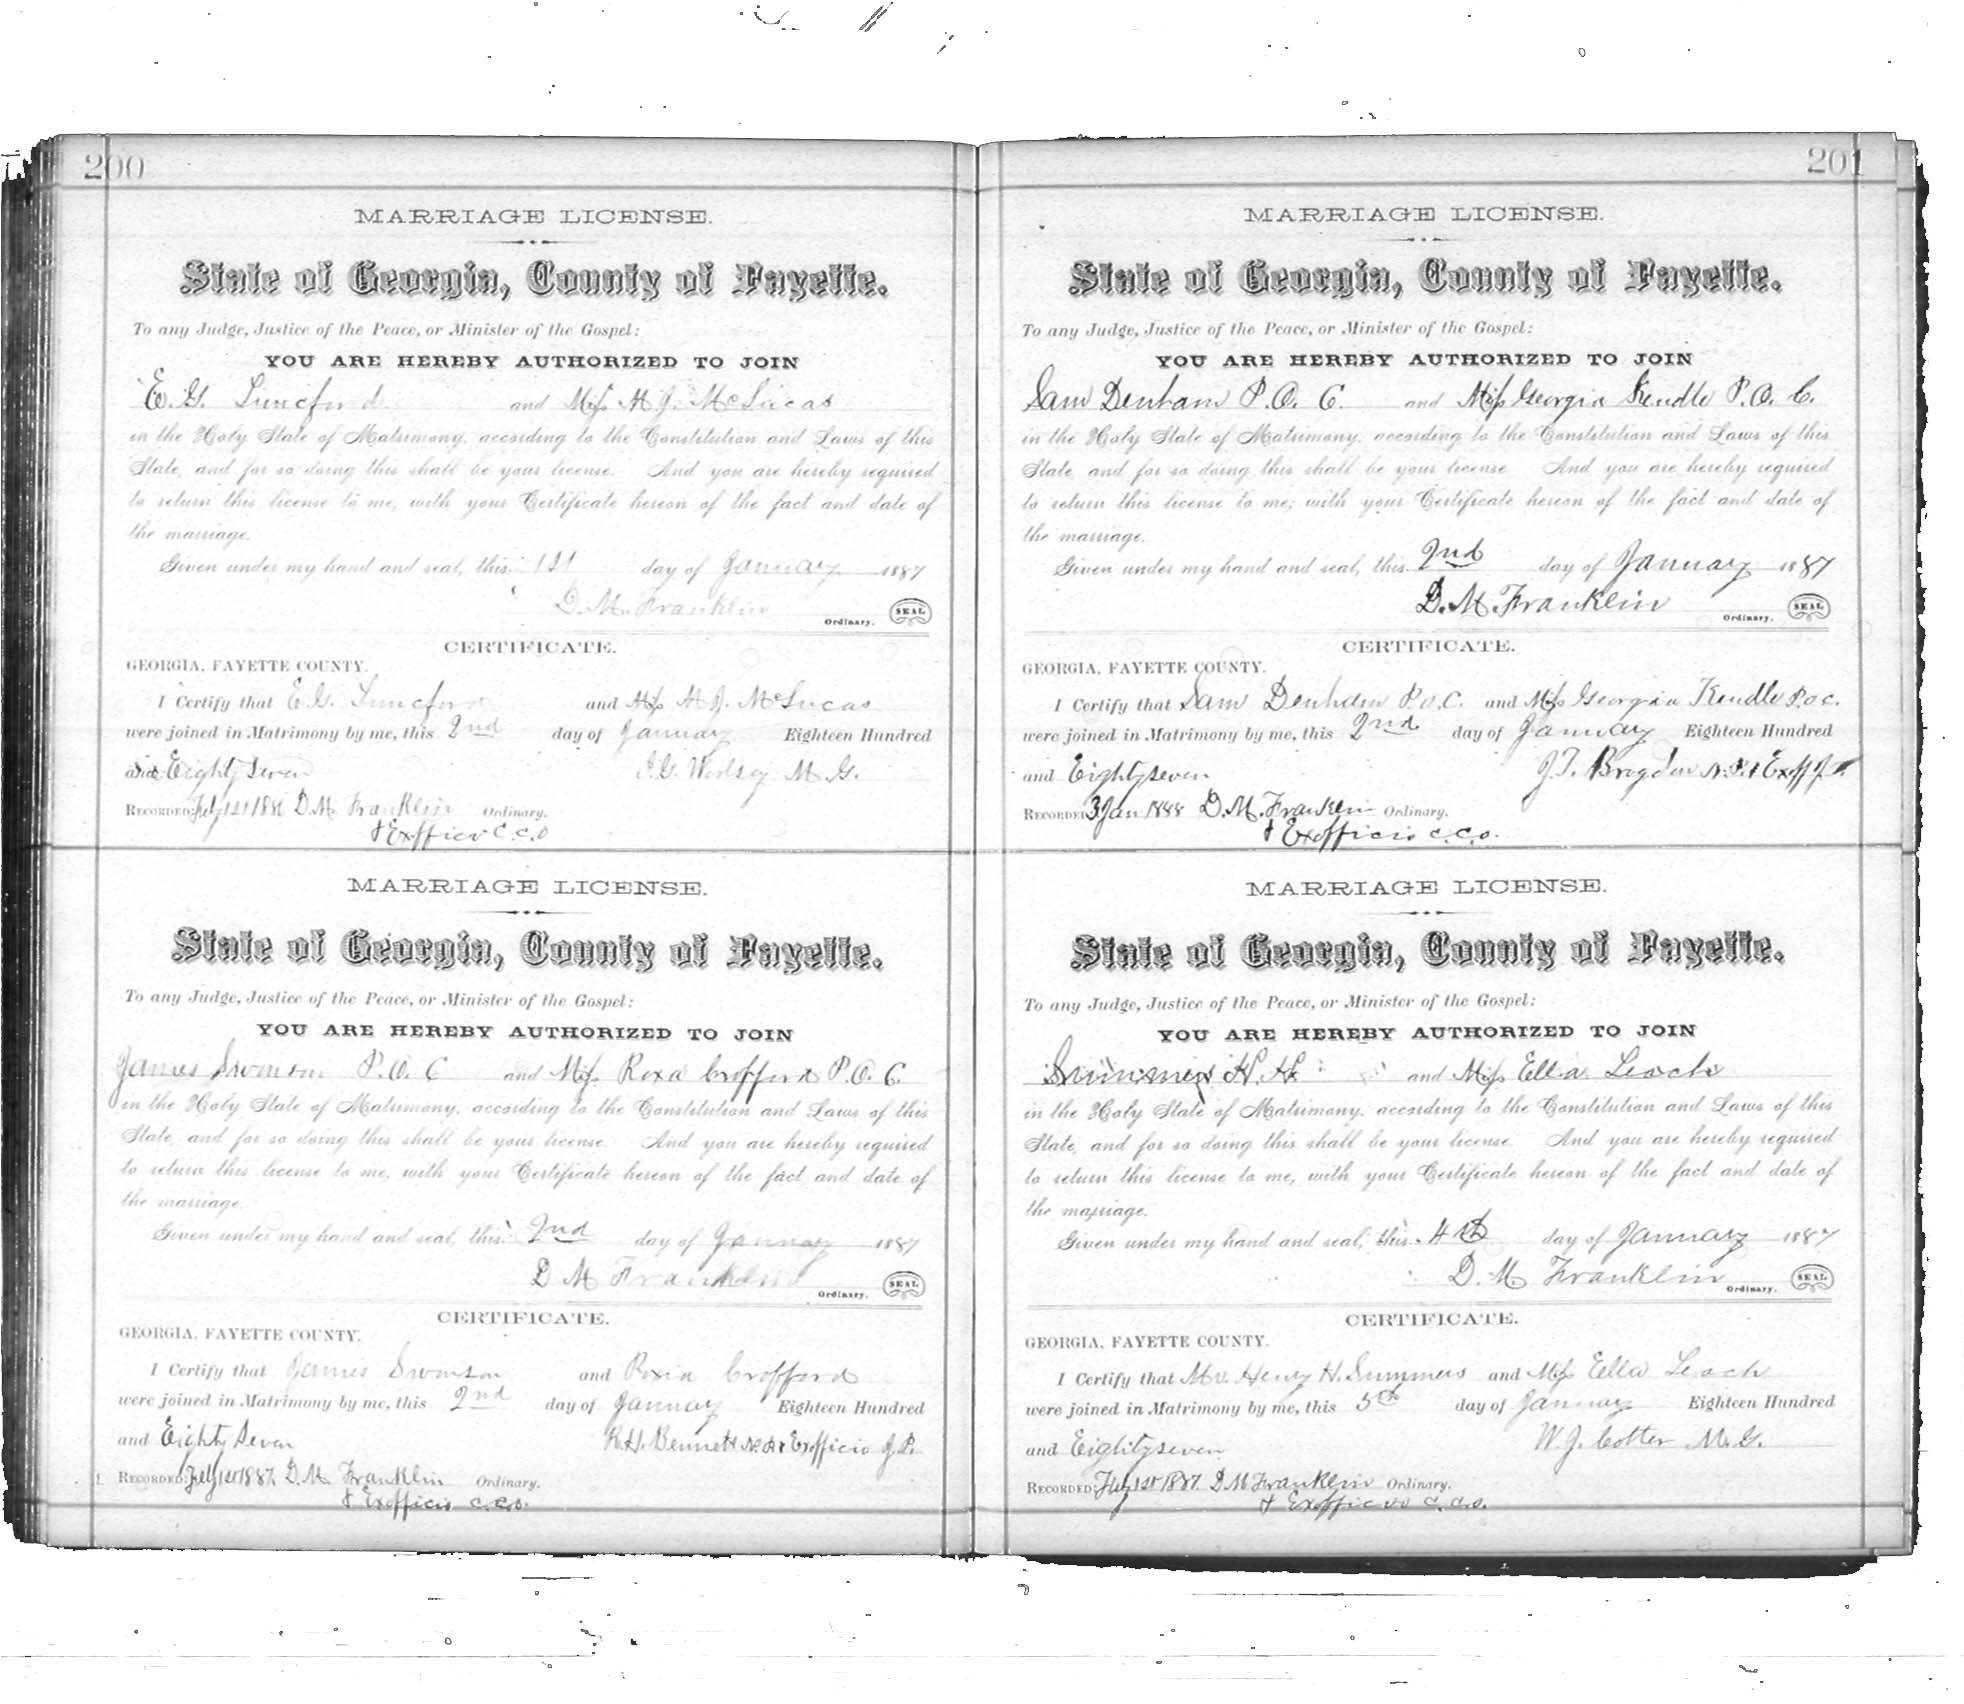 200
MARRIAGE LICENSE.
State of Georgia, County of Fayette.
To any Judge, Justice of the Peace, or Minister of the Gospel:
YOU ARE HEREBY AUTHORIZED TO JOIN
E. G. Luncford and Miss M J. McLucas
in the Holy State of Matrimony, according to the Constitution and Laws of this
State, and for so doing this shall be your license. And you are hereby required
to return this license to me, with your Certificate hereon of the fact and date of
the marriage.
Given under my hand and seal, this 1st day of January 1887
D. M. Franklin
Ordinary. SEAL
CERTIFICATE.
GEORGIA, FAYETTE COUNTY.
I Certify that E G. Luncford and Miss M J. McLucas
were joined in Matrimony by me, this 2nd day of January Eighteen Hundred
and Eighty Seven M. G.
RECORDED: Feby 1st 1886 D. M. Franklin Ordinary.
& Exofficio C. C. O
MARRIAGE LICENSE.
State of Georgia, County of Fayette.
To any Judge, Justice of the Peace, or Minister of the Gospel:
YOU ARE HEREBY AUTHORIZED TO JOIN
James Swonson P. O. C and Miss. Roxa Crofford P. O. C.
in the Holy State of Matrimony, according to the Constitution and Laws of this
State, and for so doing this shall be your license. And you are hereby required
to return this license to me, with your Certificate hereon of the fact and date of
the marriage.
Given under my hand and seal, this 2nd day of January 1887
D M Franklin
Ordinary. SEAL
CERTIFICATE.
GEORGIA, FAYETTE COUNTY.
I Certify that James Swonson and Roxia Crofford
were joined in Matrimony by me, this 2nd day of January Eighteen Hundred
and Eighty Seven R. H. Bennett N. P. & Exofficio J. P.
RECORDED: Feby 1st 1887. D. M Franklin Ordinary.
& Exofficio C. C. O.
201
MARRIAGE LICENSE.
State of Georgia, County of Fayette.
To any Judge, Justice of the Peace, or Minister of the Gospel:
YOU ARE HEREBY AUTHORIZED TO JOIN
Sam Denham P. O. C. and Miss Georgia Kendle P. O. C.
in the Holy State of Matrimony, according to the Constitution and Laws of this
State, and for so doing this shall be your license. And you are hereby required
to return this license to me; with your Certificate hereon of the fact and date of
the marriage.
Given under my hand and seal, this 2nd day of January 1887
D. M. Franklin
Ordinary. SEAL
CERTIFICATE.
GEORGIA, FAYETTE COUNTY.
I Certify that Sam Denham P. O. C. and Miss Georgia Kendle P. O C.
were joined in Matrimony by me, this 2nd day of January Eighteen Hundred
and Eightyseven J. T. Brogdon N. P. & Exoff J P
RECORDED: 3 Jan 1888 D. M. Franklin Ordinary.
& Exofficio C. C. O.
MARRIAGE LICENSE.
State of Georgia, County of Fayette.
To any Judge, Justice of the Peace, or Minister of the Gospel:
YOU ARE HEREBY AUTHORIZED TO JOIN
H. H. and Miss Ella Leach
in the Holy State of Matrimony, according to the Constitution and Laws of this
State, and for so doing this shall be your license. And you are hereby required
to return this license to me, with your Certificate hereon of the fact and date of
the marriage.
Given under my hand and seal, this 4th day of January 1887
D. M. Franklin
Ordinary. SEAL
CERTIFICATE.
GEORGIA, FAYETTE COUNTY.
I Certify that Mr. Henry H. Summers and Miss Ella Leach
were joined in Matrimony by me, this 5th day of January Eighteen Hundred
and Eightyseven W J. Cotter M. G.
RECORDED: Feby 1st 1887. D M Franklin Ordinary.
& Exofficio C. C. O.